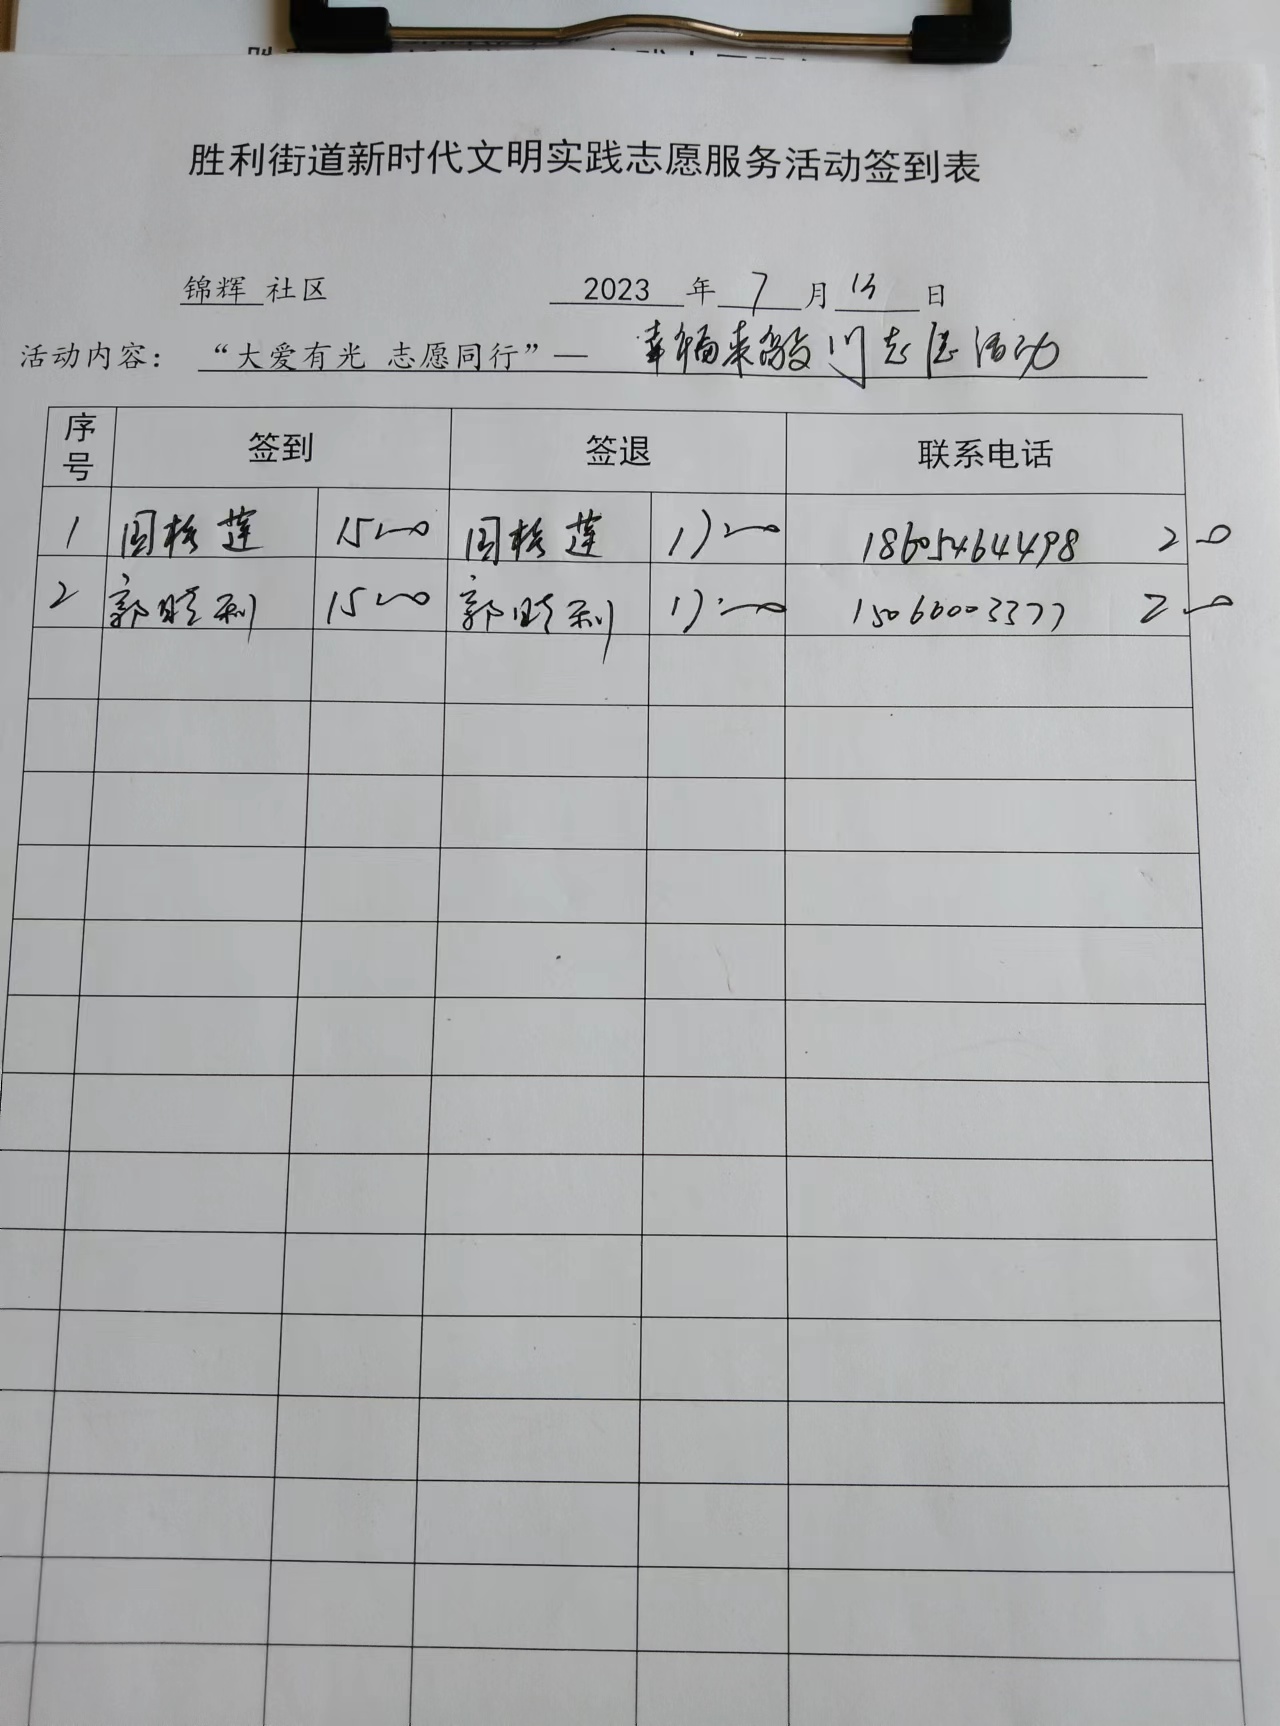 胜利街道新时代文明实践志愿服务活动签到表
锦辉 社区 2023 年 7 月 13 日
活动内容： “大爱有光 志愿同行”— 幸福来敲门志愿活动
序号 签到 签退 联系电话
1 周桂莲 15:00 周桂莲 17:00 18605464498 2
2 郭晓利 15:00 郭晓利 17:00 15066003377 2